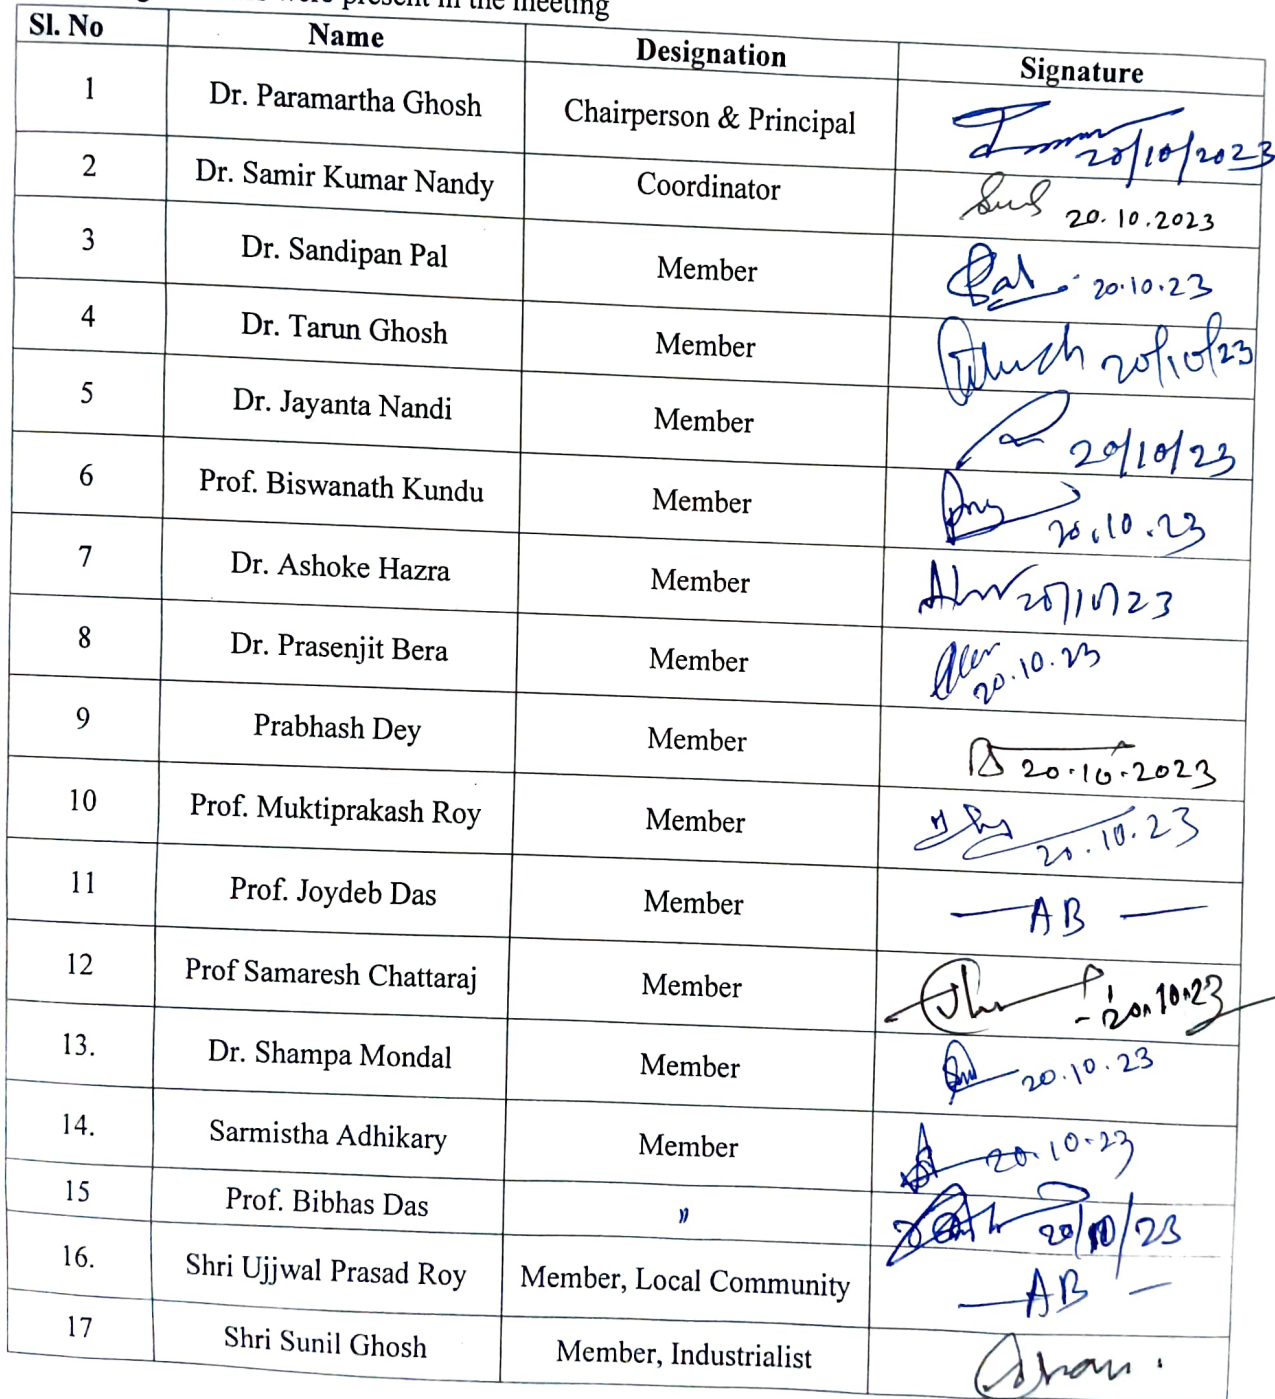 were present in the meeting
Sl. No Name Designation Signature
1 Dr. Paramartha Ghosh Chairperson & Principal 20/10/2023
2 Dr. Samir Kumar Nandy Coordinator 20.10.2023
3 Dr. Sandipan Pal Member Pal 20.10.23
4 Dr. Tarun Ghosh Member 20/10/23
5 Dr. Jayanta Nandi Member 20/10/23
6 Prof. Biswanath Kundu Member 20.10.23
7 Dr. Ashoke Hazra Member 20/10/23
8 Dr. Prasenjit Bera Member 20.10.23
9 Prabhash Dey Member 20.10.2023
10 Prof. Muktiprakash Roy Member 20.10.23
11 Prof. Joydeb Das Member — AB —
12 Prof Samaresh Chattaraj Member 20.10.23
13. Dr. Shampa Mondal Member 20.10.23
14. Sarmistha Adhikary Member 20.10.23
15 Prof. Bibhas Das " 20/10/23
16. Shri Ujjwal Prasad Roy Member, Local Community — AB —
17 Shri Sunil Ghosh Member, Industrialist